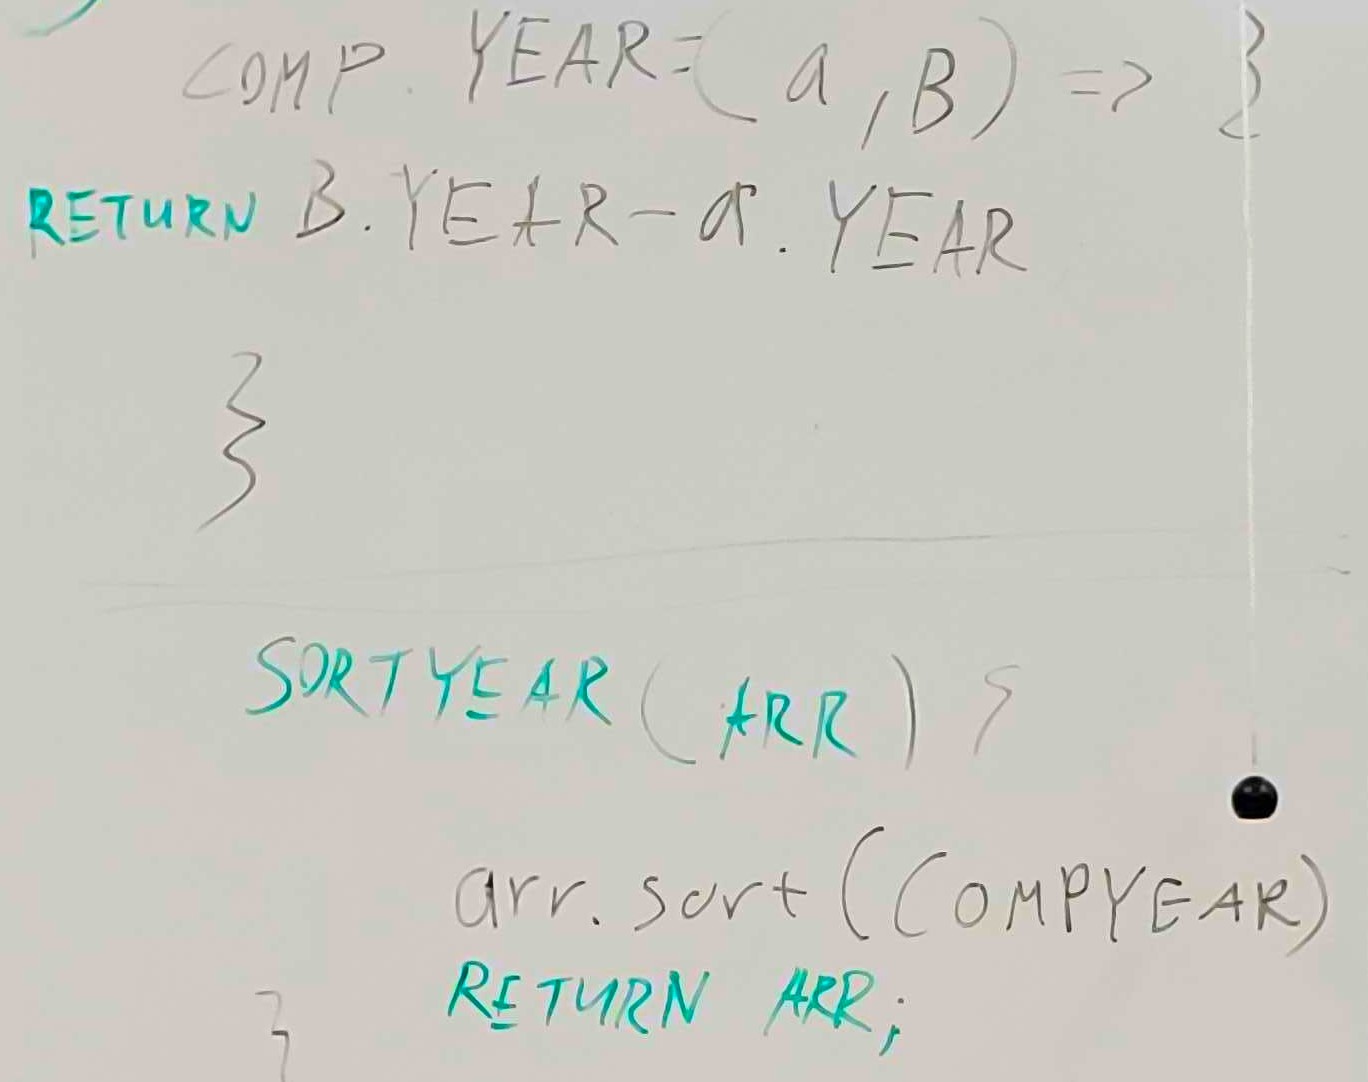 COMP. YEAR=(a,B) => {
RETURN B.YEAR-a.YEAR
}
SORTYEAR(ARR) {
arr.sort(COMPYEAR)
RETURN ARR;
}